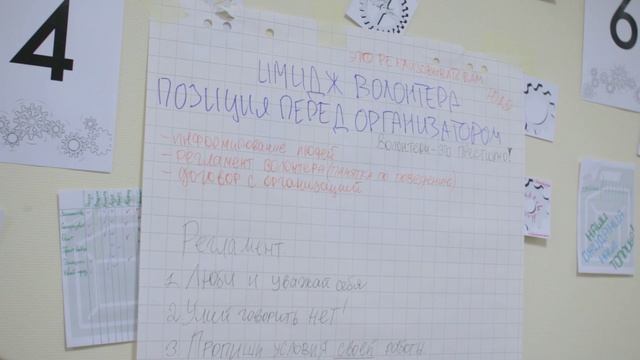 4
6
ИМИДЖ ВОЛОНТЕРА
ПОЗИЦИЯ ПЕРЕД ОРГАНИЗАТОРОМ
Волонтери - это престижно!
- информирование людей
- регламент волонтера (памятка по поведению)
- договор с организацией
Регламент
1. Люби и уважай себя
2. Умей говорить нет!
3. Пропиши условия своей работы